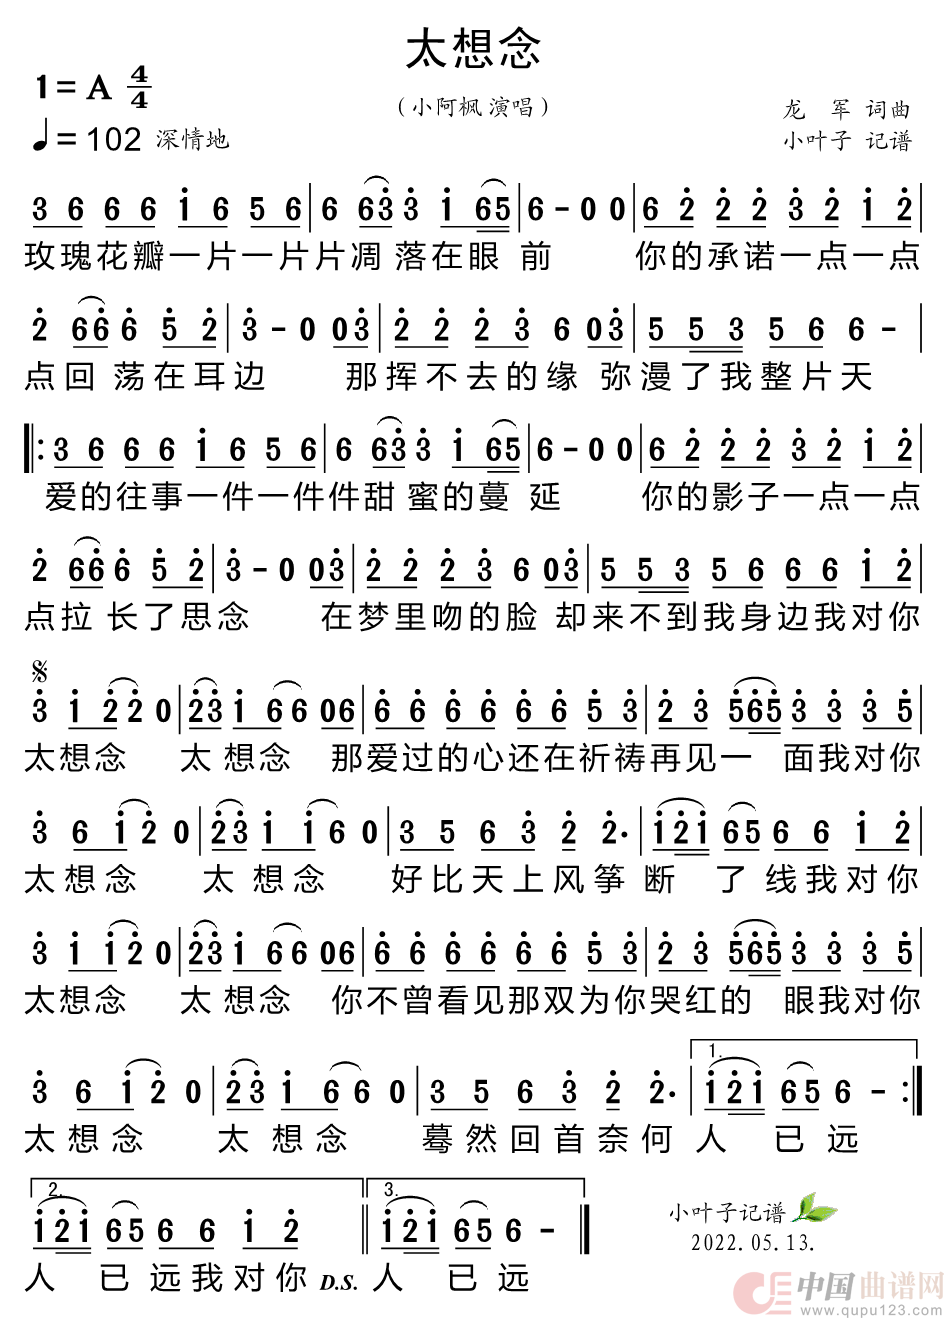 太想念
1=A 4/4
（小阿枫 演唱）
龙 军 词曲
♩=102 深情地
小叶子 记谱
3 6 6 6 1 6 5 6 | 6 63 3 1 65 | 6 - 0 0 | 6 2 2 2 3 2 1 2 |
玫瑰花瓣一片一片片凋 落在眼 前 你的承诺一点一点
2 66 6 5 2 | 3 - 0 03 | 2 2 2 3 6 03 | 5 5 3 5 6 6 - |
点回 荡在耳边 那挥不去的缘 弥漫了我整片天
‖: 3 6 6 6 1 6 5 6 | 6 63 3 1 65 | 6 - 0 0 | 6 2 2 2 3 2 1 2 |
爱的往事一件一件件甜 蜜的蔓 延 你的影子一点一点
2 66 6 5 2 | 3 - 0 03 | 2 2 2 3 6 03 | 5 5 3 5 6 6 6 1 2 |
点拉 长了思念 在梦里吻的脸 却来不到我身边我对你
3 1 2 2 0 | 23 1 6 6 06 | 6 6 6 6 6 6 5 3 | 2 3 565 3 3 3 5 |
太想念 太 想念 那爱过的心还在祈祷再见一 面我对你
3 6 1 2 0 | 23 1 1 6 0 | 3 5 6 3 2 2· | 121 65 6 6 1 2 |
太想念 太 想念 好比天上风筝 断 了 线我对你
3 1 1 2 0 | 23 1 6 6 06 | 6 6 6 6 6 6 5 3 | 2 3 565 3 3 3 5 |
太想念 太 想念 你不曾看见那双为你哭红的 眼我对你
1.
3 6 1 2 0 | 23 1 6 6 0 | 3 5 6 3 2 2· | 121 65 6 - :‖
太想念 太 想念 蓦然回首奈何 人 已 远
2. 3.
121 65 6 6 1 2 ‖ 121 65 6 - ‖
人 已 远我对你 D.S. 人 已 远
小叶子记谱
2022.05.13.
中国曲谱网
www.qupu123.com